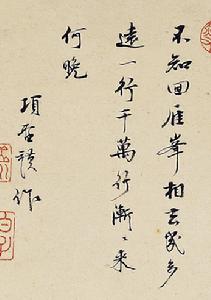 不知回雁峯相去幾多
遠一行千萬行漸〻來
何晚
項聖謨作